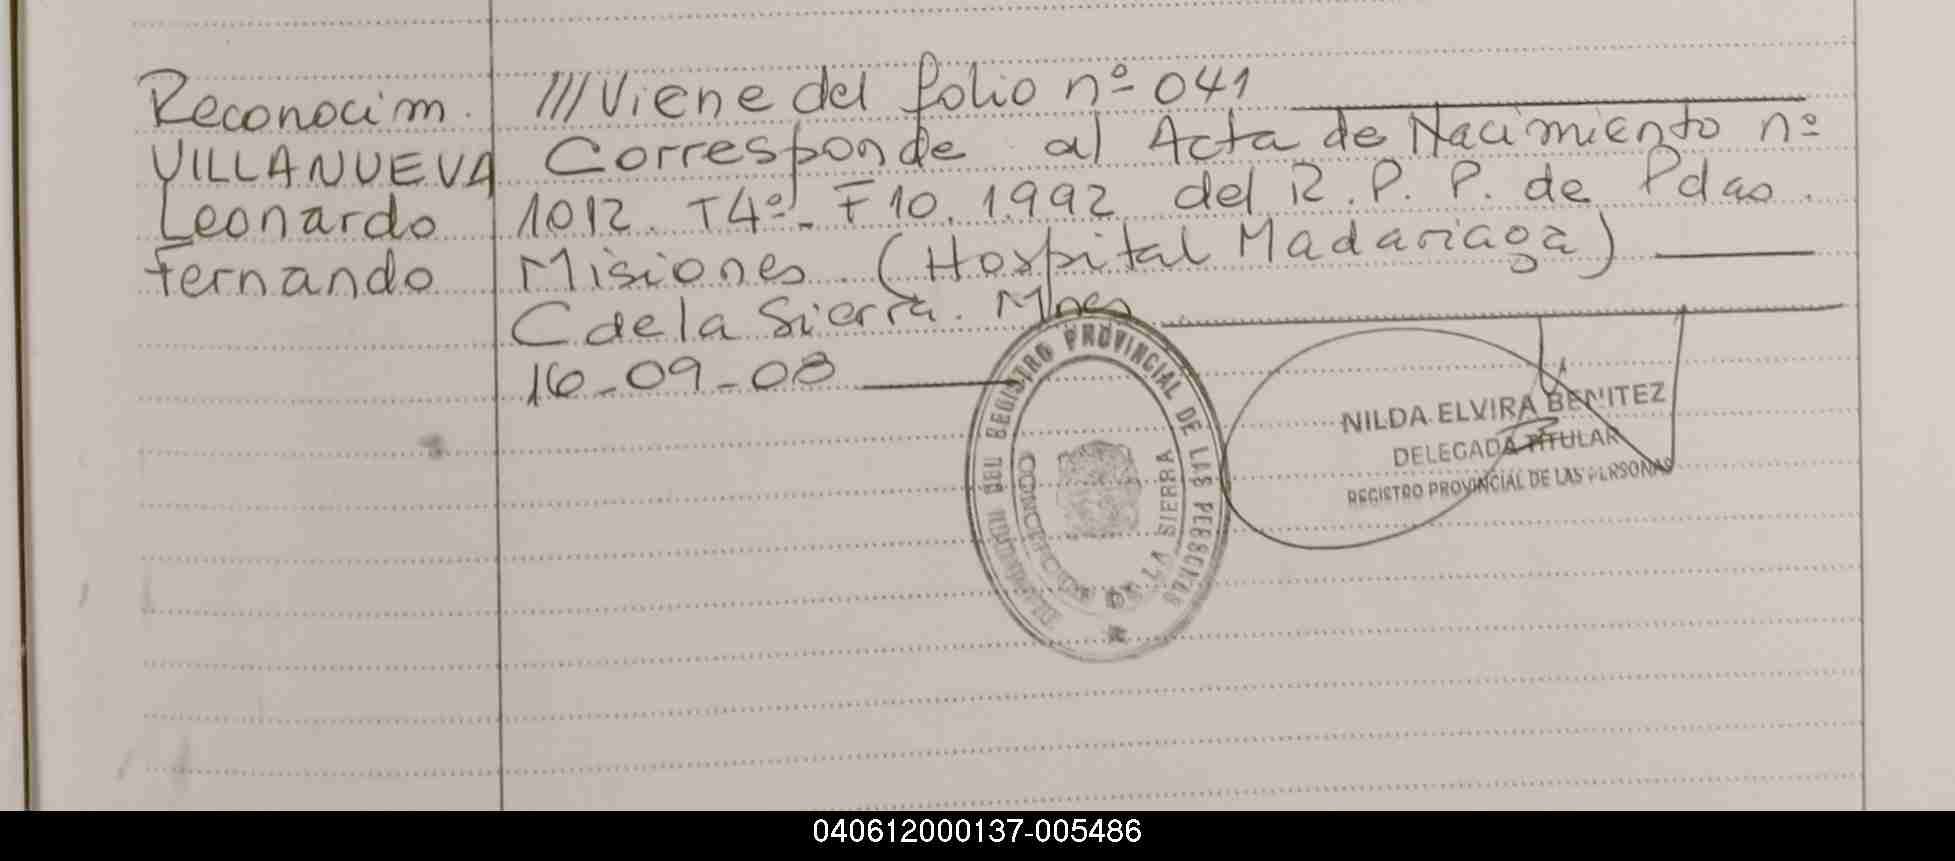 Reconocim.
VILLANUEVA
Leonardo
Fernando
///Viene del folio nº 041
Corresponde al Acta de Nacimiento nº
1012. T4º_ F10. 1992 del R.P.P. de Pdas.
Misiones. (Hospital Madariaga)
C de la Sierra. Mnes
16-09-08
DEL REGISTRO PROVINCIAL DE LAS PERSONAS
CONCEPCION DE LA SIERRA
NILDA ELVIRA BENITEZ
DELEGADA TITULAR
REGISTRO PROVINCIAL DE LAS PERSONAS
040612000137-005486